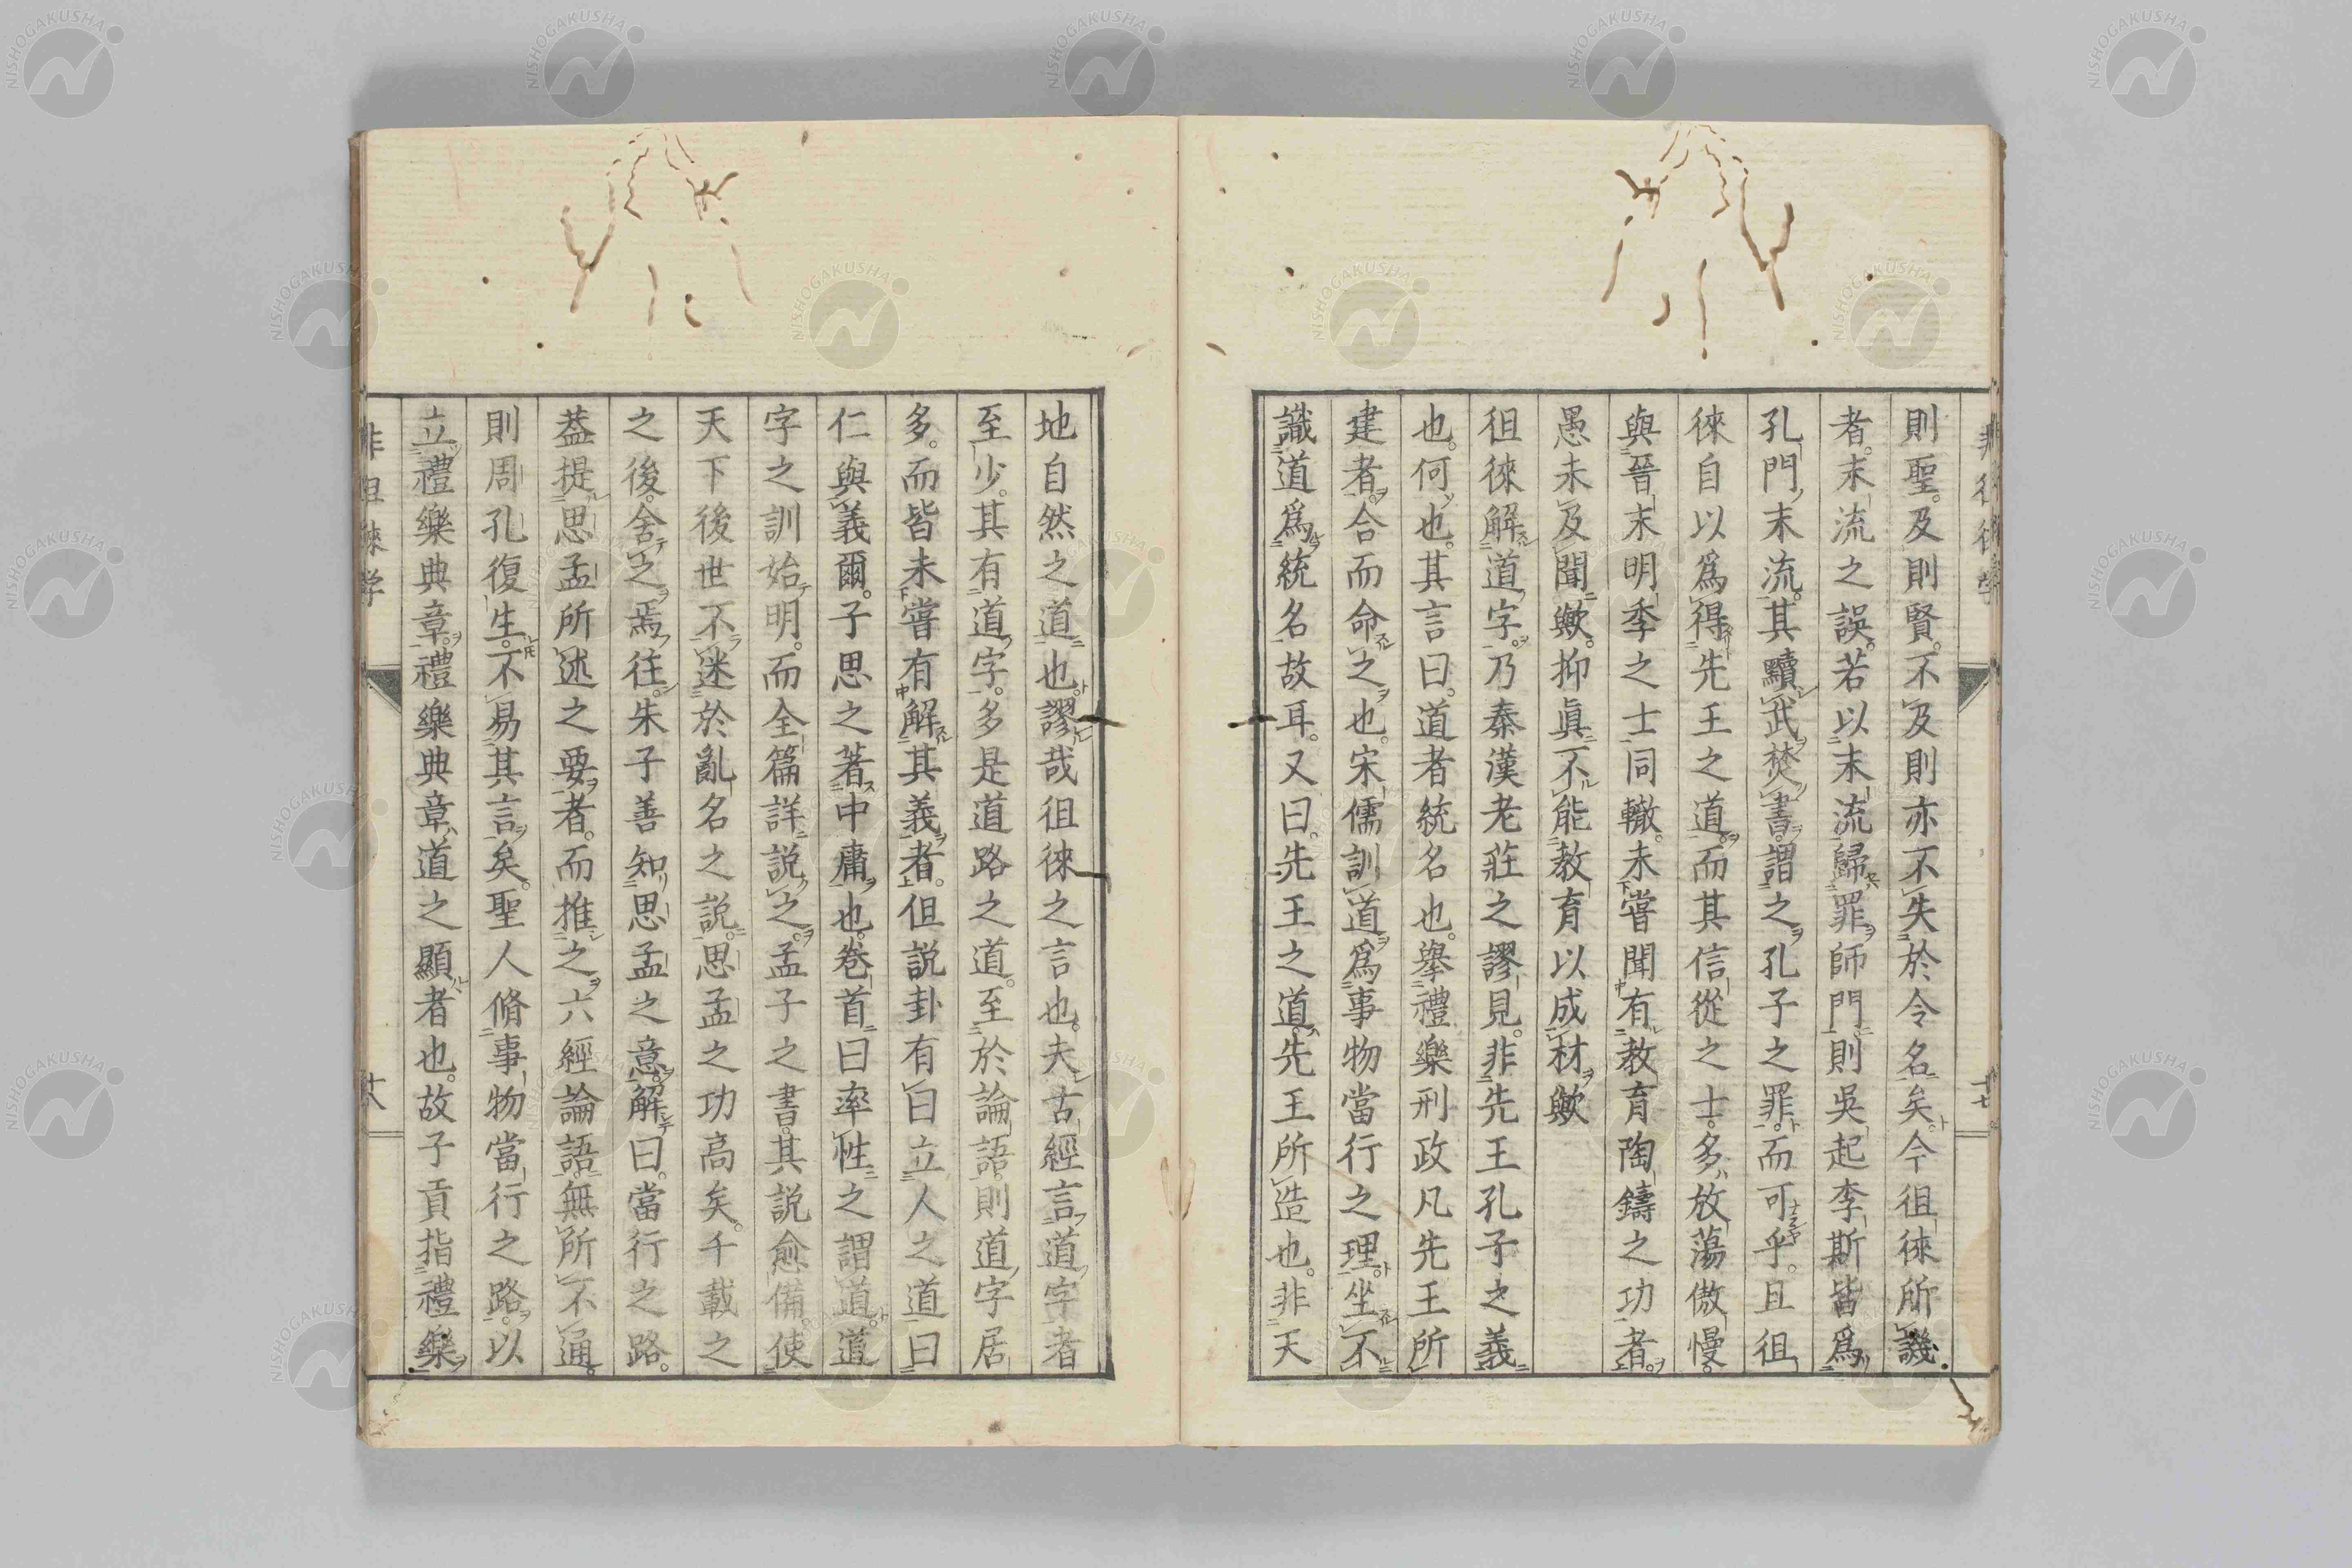 則聖。及則賢。不及則亦不失於令名矣。今徂徠所譏
者。末流之誤。若以末流歸罪師門。則吳起李斯皆爲
孔門末流。其黷武焚書。謂之孔子之罪。而可乎。且徂
徠自以爲得先王之道。而其信從之士。多放蕩傲慢。
與晉末明季之士同轍。未嘗聞有教育陶鑄之功者。
愚未及聞歟。抑眞不能教育以成材歟
徂徠解道字。乃秦漢老莊之謬見。非先王孔子之義
也。何也。其言曰。道者統名也。舉禮樂刑政凡先王所
建者。合而命之也。宋儒訓道爲事物當行之理。坐不
識道爲統名故耳。又曰。先王之道。先王所造也。非天
地自然之道也。謬哉徂徠之言也。夫古經言道字者
至少。其有道字。多是道路之道。至於論語。則道字居
多。而皆未嘗有解其義者。但説卦有曰立人之道曰
仁與義爾。子思之著中庸也。卷首曰率性之謂道。道
字之訓始明。而全篇詳説之。孟子之書。其説愈備。使
天下後世不迷於亂名之説。思孟之功高矣。千載之
之後。舍之焉往。朱子善知思孟之意。解曰。當行之路。
葢提思孟所述之要者。而推之六經論語。無所不通。
則周孔復生。不易其言矣。聖人脩事物當行之路。以
立禮樂典章。禮樂典章。道之顯者也。故子貢指禮樂
非徂徠学
十七
NISHOGAKUSHA